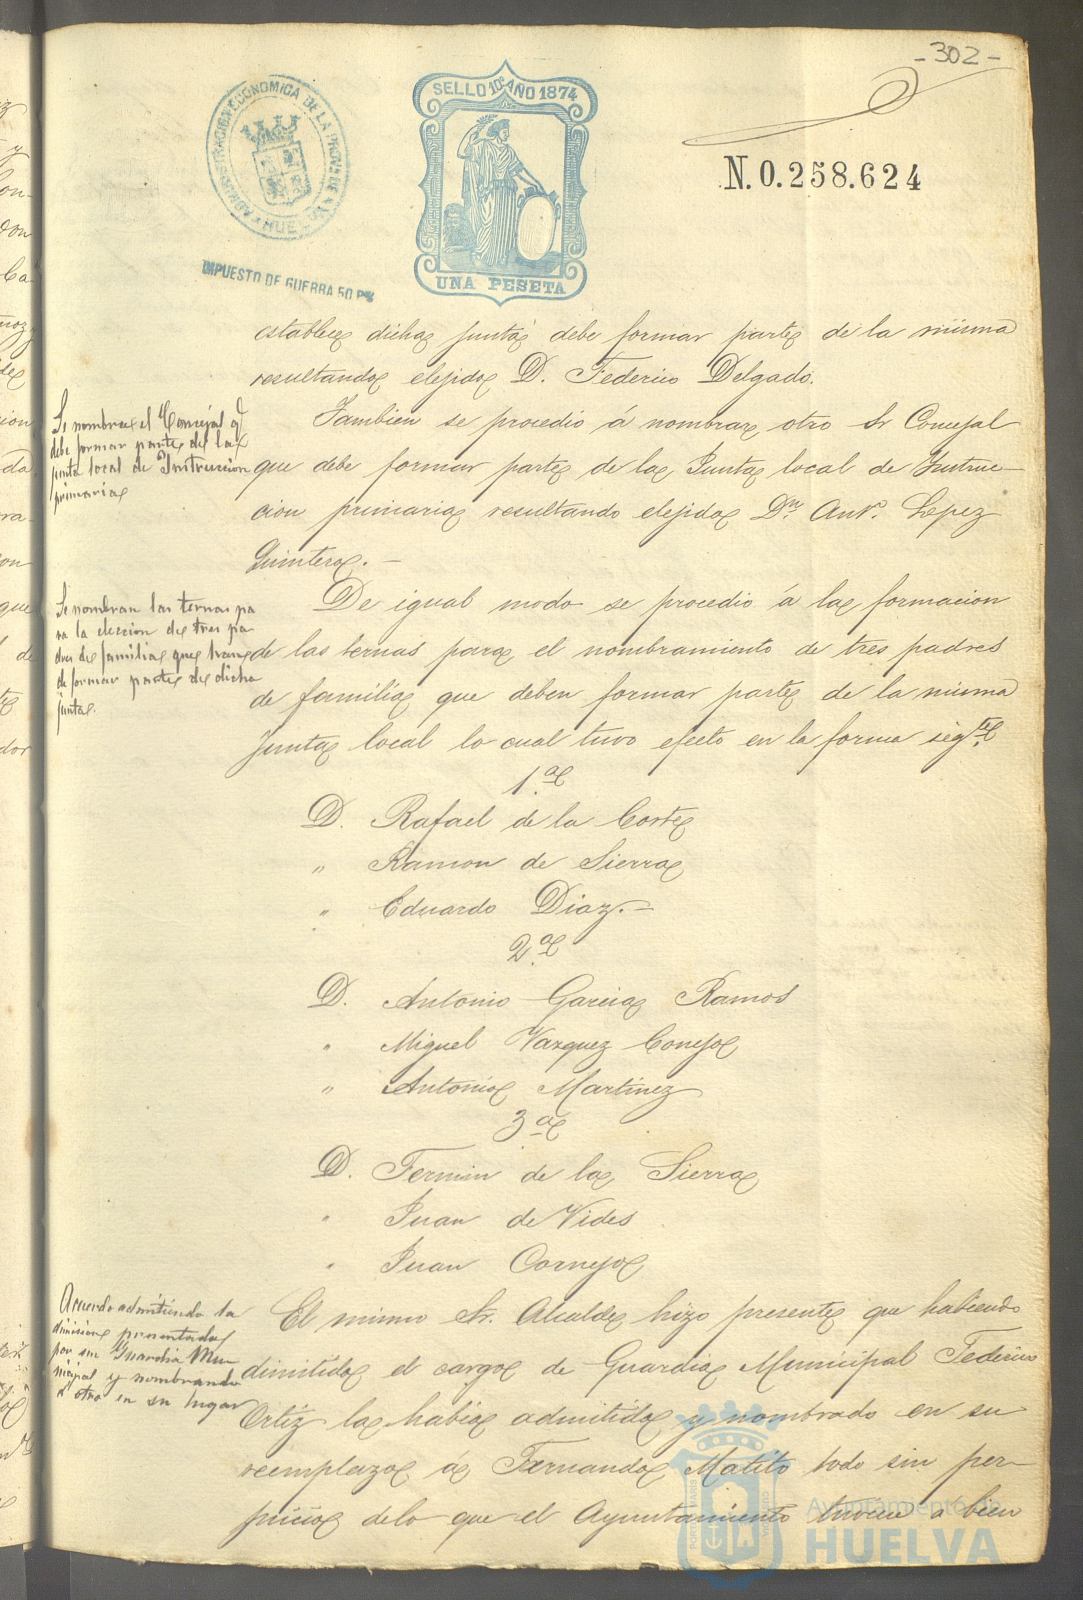 - 302 -
ADMINISTRACION ECONOMICA DE LA PROVª DE HUELVA
SELLO 10º AÑO 1874
UNA PESETA
N. 0.258.624
IMPUESTO DE GUERRA 50
establece dicha junta debe formar parte de la misma
resultando elejido D. Federico Delgado.
Se nombra el Concejal q
debe formar parte de la
junta local de Instruccion
primaria
Tambien se procedio á nombrar otro Sr Concejal
que debe formar parte de la Junta local de Instruc-
cion primaria resultando elejido Dn. Antº. Lopez
Quintero. -
Se nombran las ternas pa
ra la eleccion de tres pa
dres de familia que han
de formar parte de dicha
junta.
De igual modo se procedió á la formacion
de las ternas para el nombramiento de tres padres
de familia que deben formar parte de la misma
Junta local lo cual tuvo efecto en la forma sigte
1.ª
D. Rafael de la Corte
" Ramon de Sierra
" Eduardo Diaz. -
2.ª
D. Antonio Garcia Ramos
" Miguel Vazquez Conejo
" Antonio Martinez
3.ª
D. Fermin de la Sierra
" Juan de Vides
" Juan Cornejo
Acuerdo admitiendo la
dimision presentada
por un Guardia Mu
nicipal y nombrando
a otro en su lugar
El mismo Sr. Alcalde hizo presente que habiendo
dimitido el cargo de Guardia Municipal Federico
Ortiz la habia admitido y nombrado en su
reemplazo á Fernando Matito todo sin per-
juicio de lo que el Ayuntamiento tuviese a bien
Ayuntamiento de
HUELVA